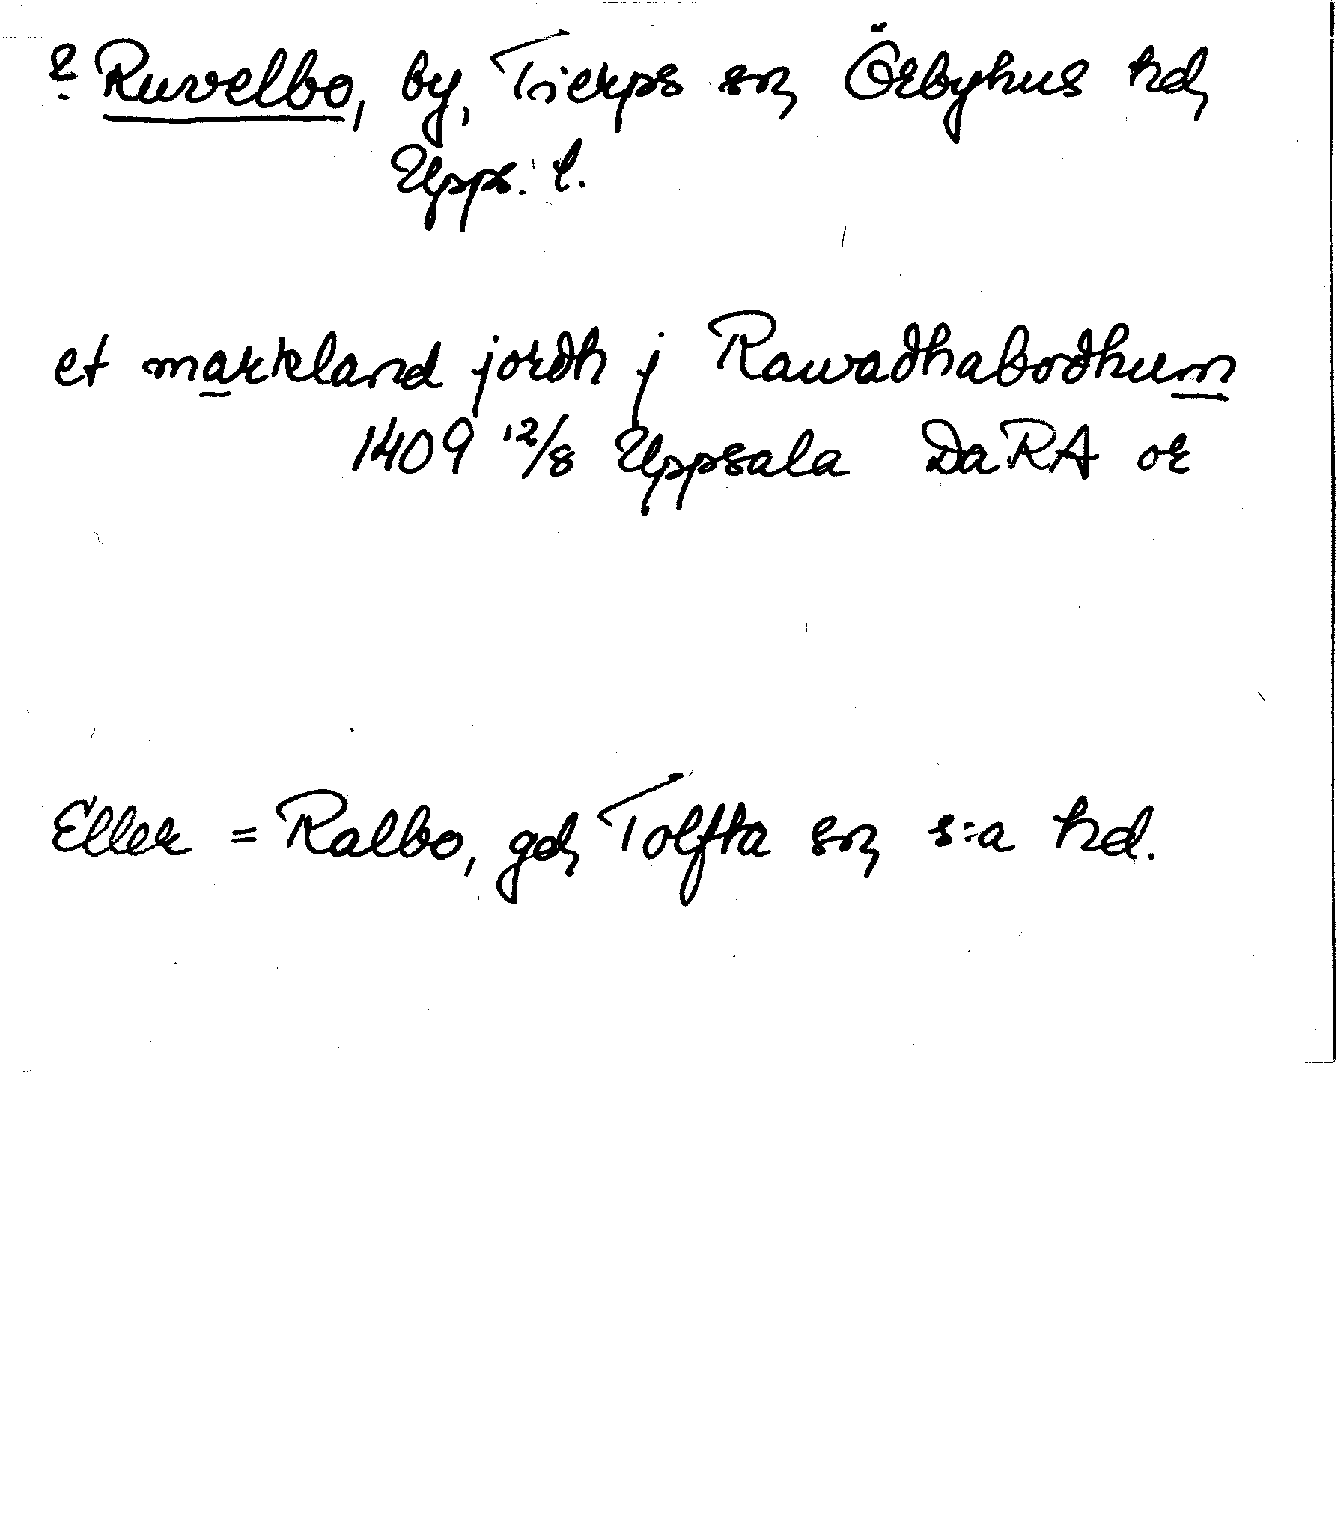 ? Ruvelbo, by, Tierps sn, Örbyhus hd,
Upps. l.
et markland jordh j Rawadhabodhum
1409 12/8 Uppsala DaRA or
Eller = Ralbo, gd, Tolfta sn, s:a hd.